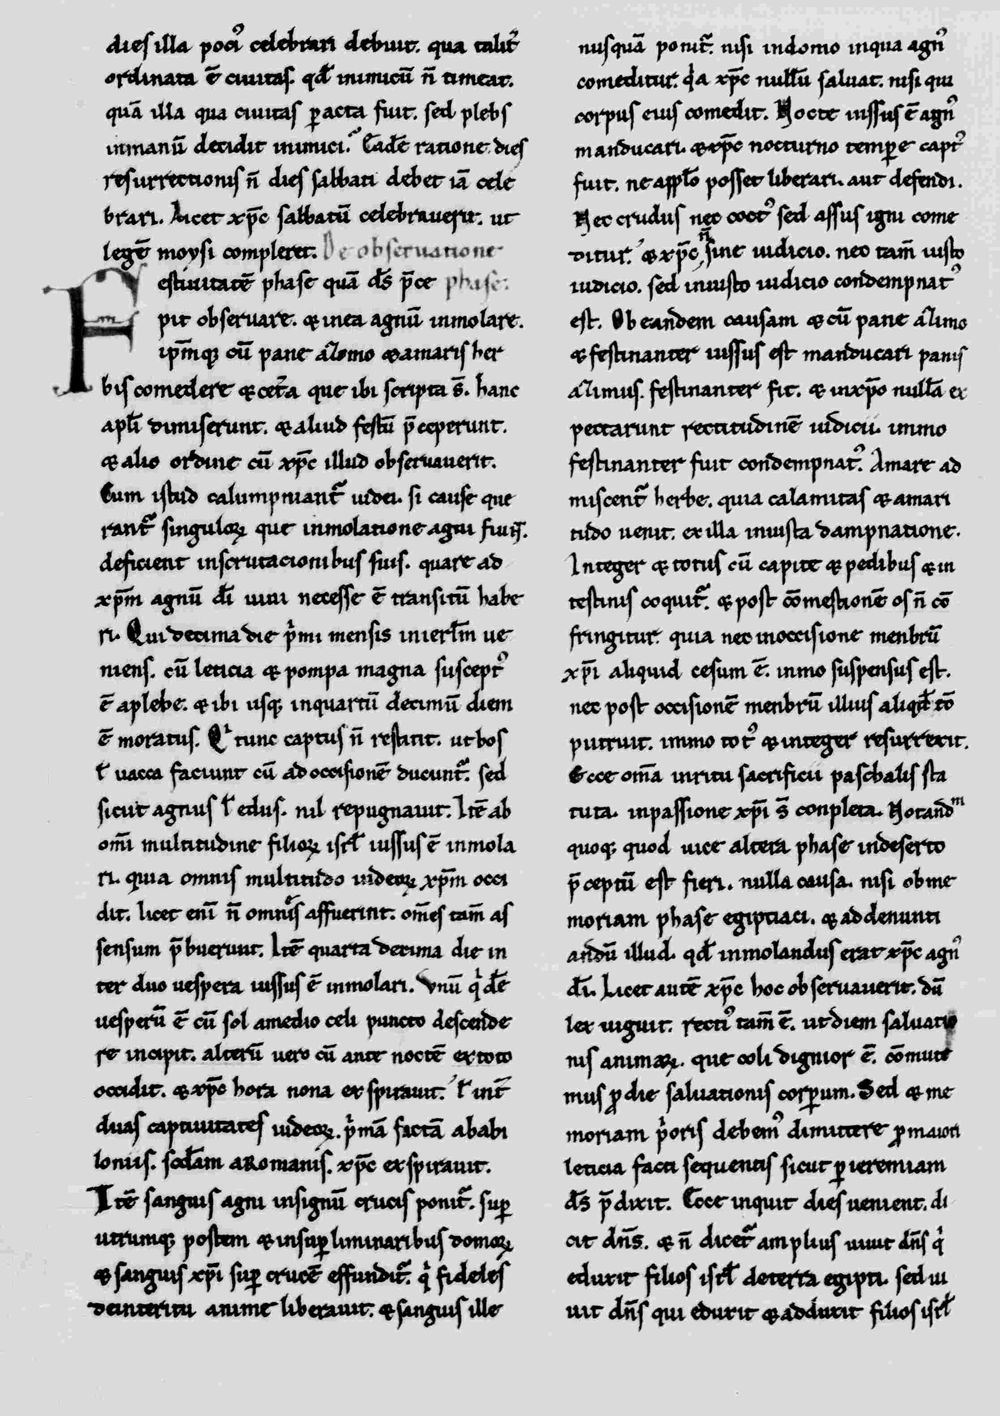 dies illa poci᷒ celebrari debuit. qua talit̄
ordinata ē ciuitas. qđ inimicū n̄ timeat.
quā illa qua ciuitas ꝑacta fuit. sed plebs
inmanū decidit inimici. Eadē ratione dies
resurrectionis n̄ dies sabbati debet iā cele
brari. Licet xp̄c sabbatū celebrauerit. ut
legē moysi compleret. De obseruatione
estiuitatē phase quā ds̄ p̄ce phase.
F pit obseruare. ⁊ in ea agnū inmolare.
ip̄mq; cū pane ałimo ⁊ amaris her
bis comedere ⁊ cet̄a que ibi scripta s̄. hanc
apłi dimiserunt. ⁊ aliud festū p̄ceperunt.
⁊ alio ordine cū xp̄c illud obseruauerit.
Cum istud calumpniant᷑ iudei. si cause que
rant᷑ singuloꝝ que inmolatione agni fiunt.
deficient inscrutacionibus suis. quare ad
xp̄m agnū dī uiui necesse ē transitū habe
ri. Qui decima die p̄mi mensis in ierłm ue
niens. cū leticia ⁊ pompa magna suscept᷒
ē a plebe. ⁊ ibi usq; in quartū decimū diem
ē moratus. Qͥ tunc captus n̄ restitit. ut bos
ł uacca faciunt cū ad occisionē ducunt᷑. sed
sicut agnus ł edus. nil repugnauit. Itē ab
om̄i multitudine filioꝝ isrł iussus ē inmola
ri. quia omnis multitudo iudeoꝝ xp̄m occi
dit. licet eni n̄ omnes affuerint. om̄es tam̄ as
sensum p̄buerunt. Itē quarta decima die in
ter duo uespera iussus ē inmolari. Vnū qͥdē
uesperū ē cū sol a medio celi puncto descende
re incipit. alterū uero cū ante noctē ex toto
occidit. ⁊ xp̄c hora nona exspirauit. ł int̄
duas captiuitates iudeoꝝ. p̄mā factā a babi
loniis. scđam a Romanis. xp̄c exspirauit.
Itē sanguis agni in signū crucis ponit᷑. suꝑ
utrumq; postem ⁊ in suꝑliminaribus domoꝝ
⁊ sanguis xp̄i suꝑ crucē effundit᷑. qͥ fideles
de interitu anime liberauit. ⁊ sanguis ille
nusquā ponit᷑. nisi in domo in qua agn᷒
comeditur. qͥa xp̄c nullū saluat. nisi qui
corpus eius comedit. Nocte iussus ē agn᷒
manducari. ⁊ xp̄c nocturno tempore capt᷒
fuit. ne a pplo posset liberari. aut defendi.
Nec crudus nec coct᷒ sed assus igni come
ditur. ⁊ xp̄c n̄ sine iudicio. nec tam̄ iusto
iudicio. sed iniusto iudicio condempnat᷒
est. Ob eandem causam ⁊ cū pane ałimo
⁊ festinanter iussus est manducari panis
ałimus. festinanter fit. ⁊ in xp̄o nullā ex
pectarunt rectitudinē iudicii. immo
festinanter fuit condempnat᷒. Amare ad
miscent᷑ herbe. quia calamitas ⁊ amari
tudo uenit. ex illa iniusta dampnatione.
Integer ⁊ totus cū capite ⁊ pedibus ⁊ in
testinis coquit᷑. ⁊ post cōmestionē os n̄ cō
fringitur. quia nec in occisione menbrū
xp̄i aliquid cesum ē. inmo suspensus est.
nec post occisionē menbrū illius aliqđ cō
putruit. immo tot᷒ ⁊ integer resurrexit.
Ecce om̄a in ritu sacrificii paschalis sta
tuta. in passione xp̄i s̄ conpleta. Notandᵐ
quoq; quod uice altera phase in deserto
p̄ceptū est fieri. nulla causa. nisi ob me
moriam phase egiptiaci. ⁊ ad denunti
andū illud. qđ inmolandus erat xp̄c agn᷒
dī. Licet autē xp̄c hoc obseruauerit. dū
lex uiguit. recti᷒ tam̄ ē. ut diem saluatio
nis animaꝝ. que coli dignior ē. cōmute
mus ꝓ die saluationis corꝑum. Sed ⁊ me
moriam p̄oris debem᷒ dimittere ꝓ maiori
leticia facti sequentis sicut ꝑ ieremiam
ds̄ p̄dixit. Ecce inquit dies uenient. di
cit dn̄s. ⁊ n̄ dicet᷑ amplius uiuit dn̄s qͥ
eduxit filios isrł de terra egipti. sed ui
uit dn̄s qui eduxit ⁊ adduxit filios isrł